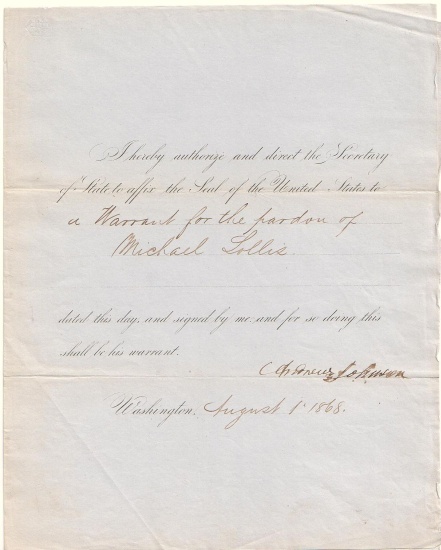 I hereby authorize and direct the Secretary
of State to affix the Seal of the United States to
a Warrant for the pardon of
Michael Lollis.
dated this day, and signed by me and for so doing this
shall be his warrant.
Andrew Johnson
Washington, August 1 1868.